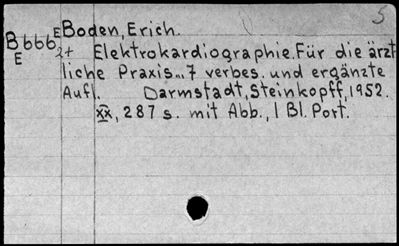 5
B666 E Boden, Erich.
E 2+ Elektrokardiographie. Für die ärzt-
liche Praxis... 7 verbes. und ergänzte
Aufl. Darmstadt, Steinkopff, 1952.
XX, 287 s. mit Abb., 1 Bl. Port.